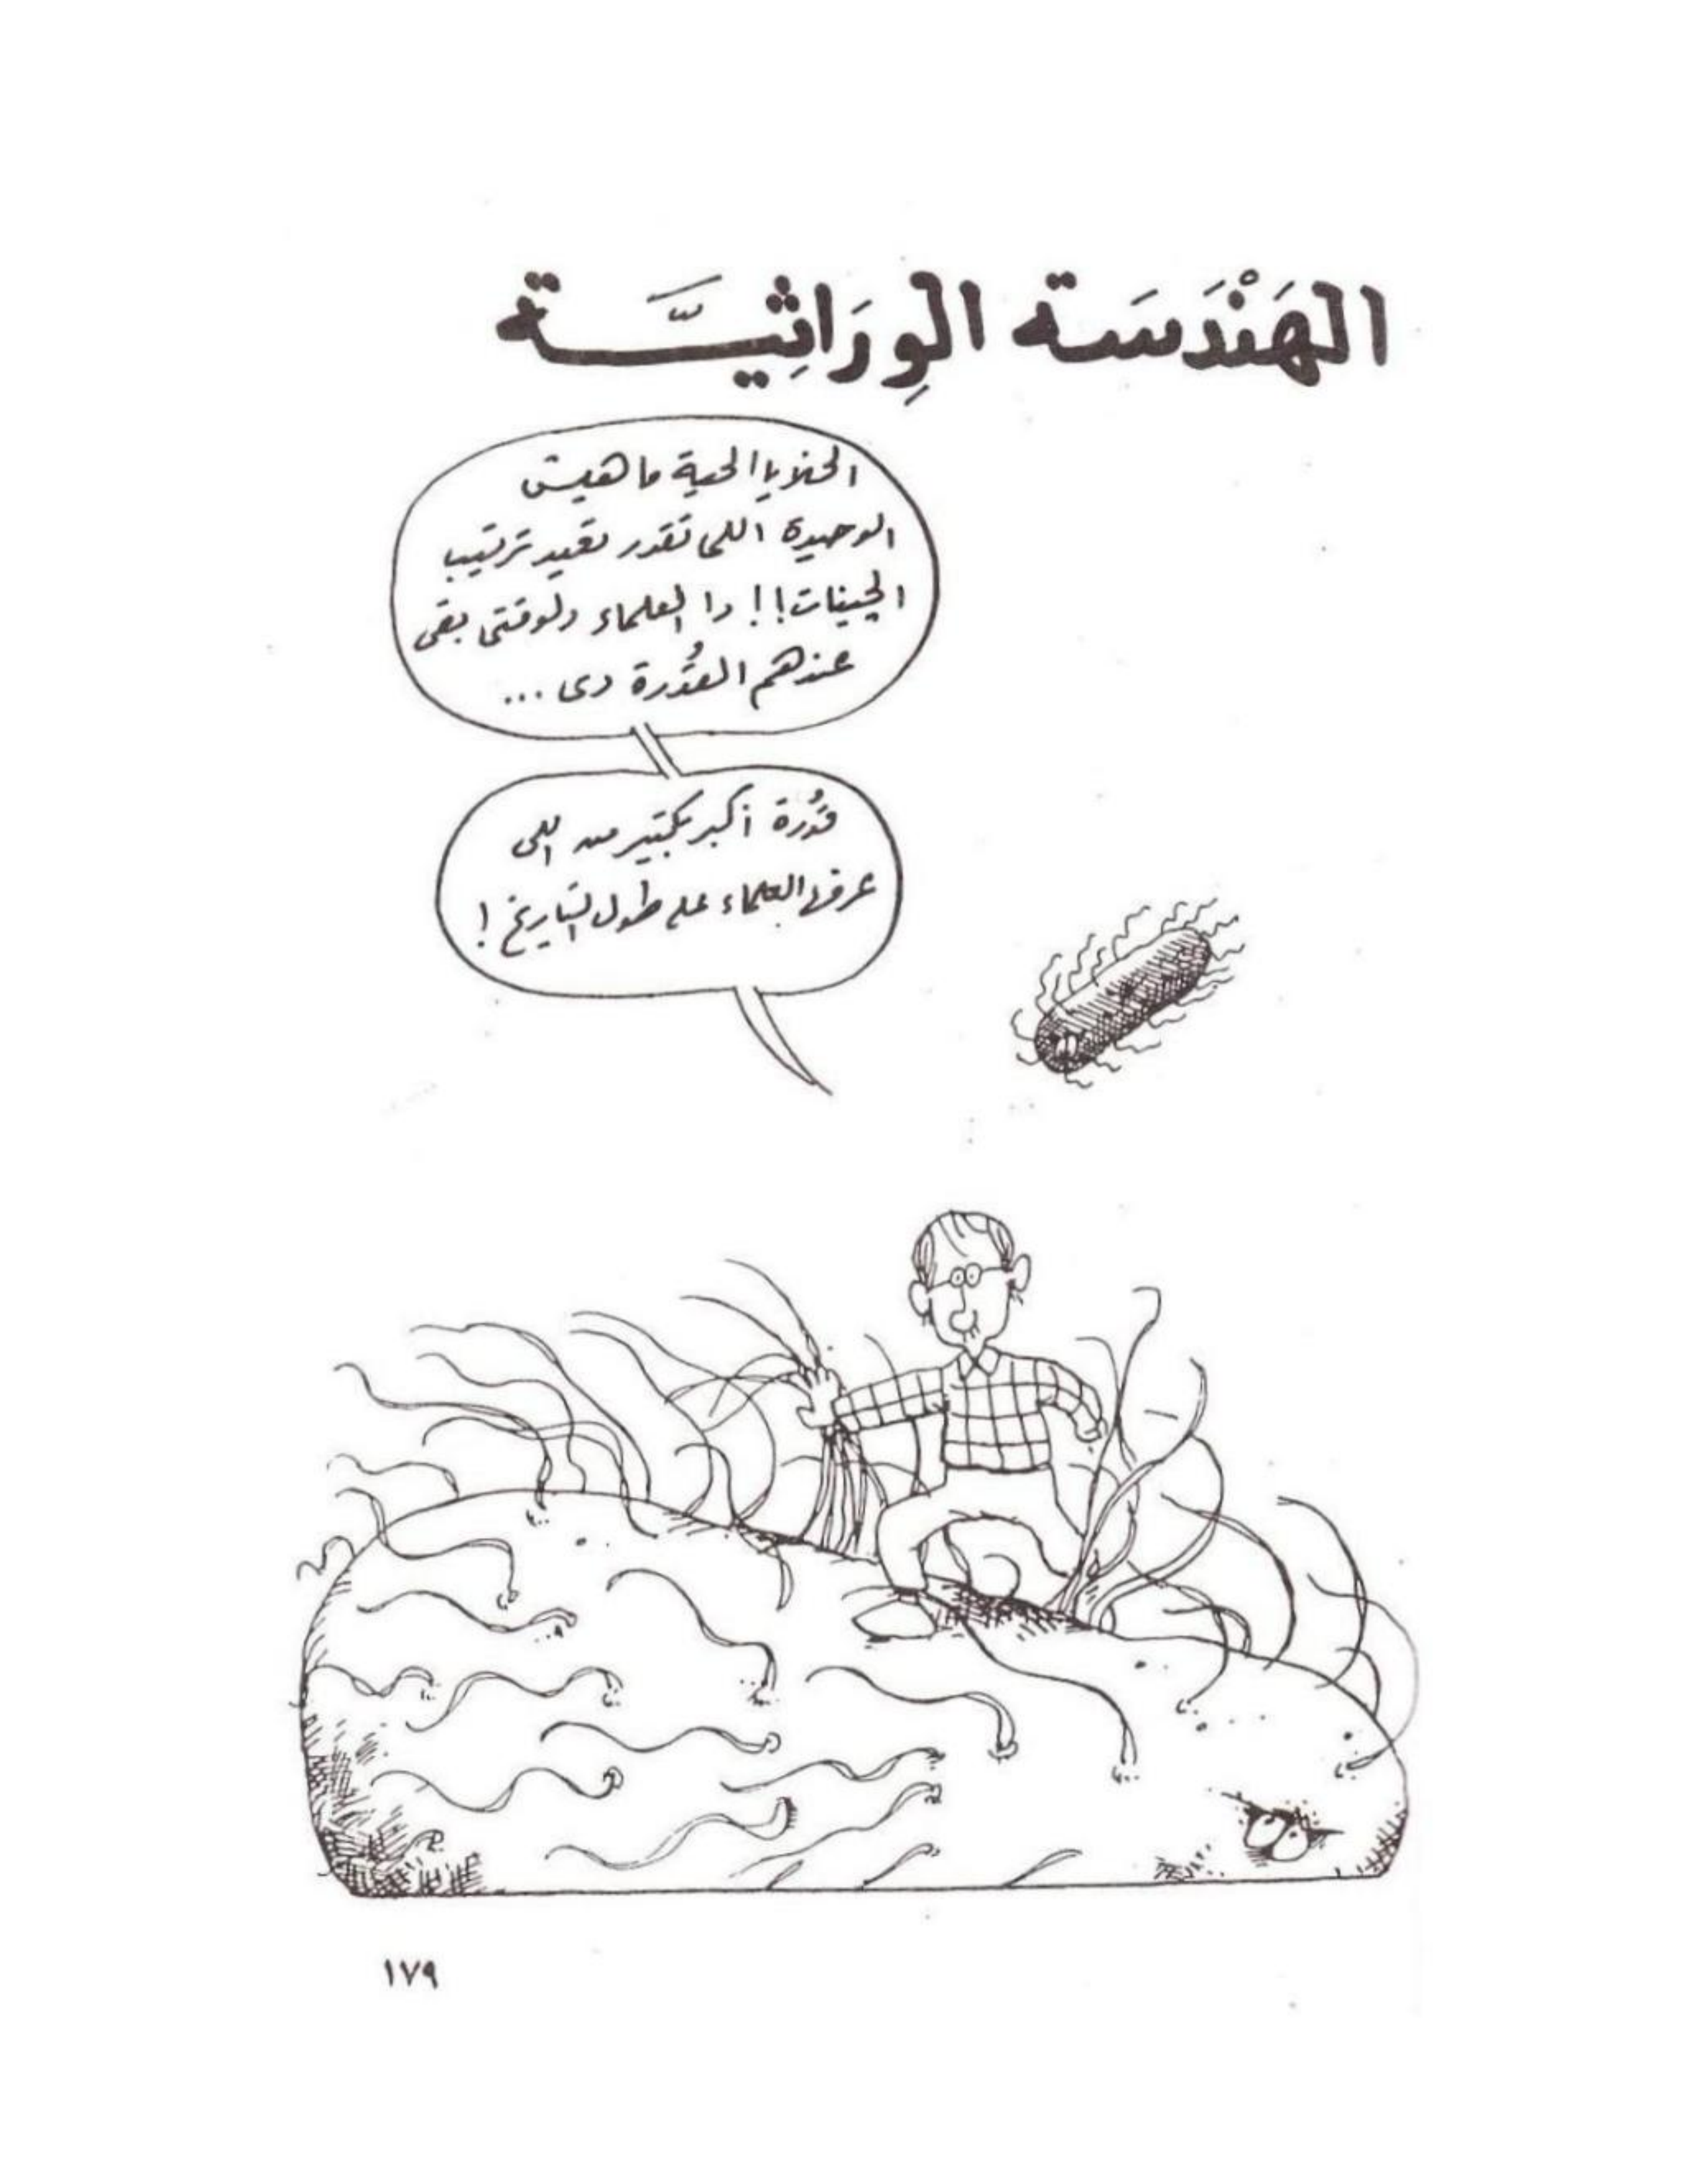 الهَنْدَسَة الوِرَاثِيَّة
الخلايا الحية ماهيش
الوحيدة اللى تقدر تعيد ترتيب
الچينات!! دا العلماء دلوقتى بقى
عندهم القُدرة دى ...
قُدرة أكبر بكتير من اللى
عرفها العلماء على طول التاريخ!
١٧٩